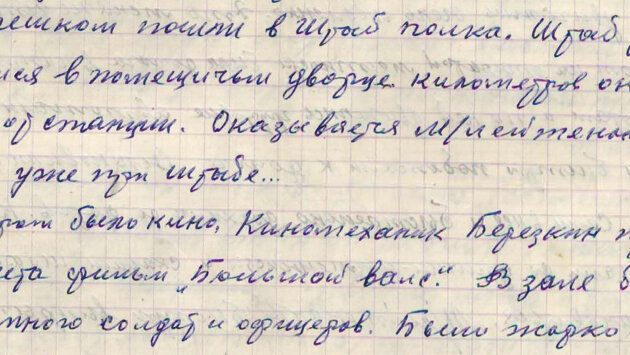 ешком пошли в Штаб полка. Штаб
ся в помещичьм дворце километров
от станции. Оказывается М/лейженан
уже при штабе...
было кино, Киномеханик Березкин
фильм „Большой вальс". В зале б
много солдат и офицеров. Было жарко